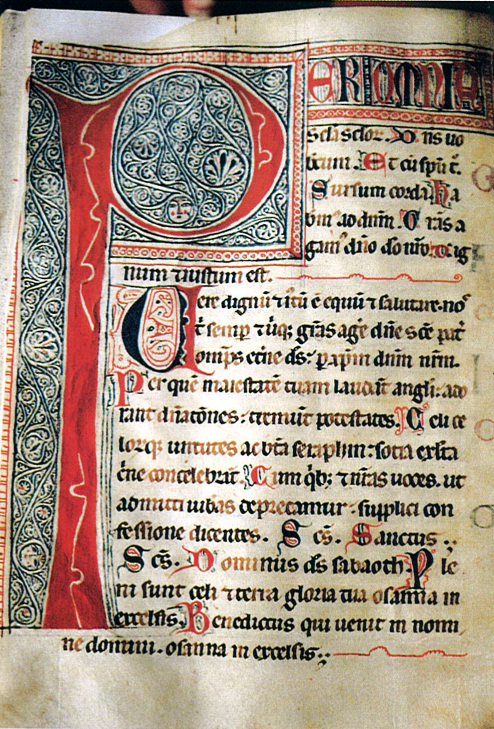 PER OMNIA
scła scłor. Dn̄s uo
bicum. Et cū sp̄u t̄.
Sursum corda. Ha
bm̄ ad dn̄m. Gr̄as a
gam' dn̄o dō nr̄o. Dig
num ⁊ iustum est.
Uere dignū ⁊ iū ē equū ⁊ salutare. nos
t̄ semp ⁊ ubiq; gr̄as agē dn̄e sc̄e pat̄
omp̄s et̄ne ds̄: p xp̄m dn̄m nr̄m.
Per quē maiestatē tuam laudāt angli: ado
rant dn̄atōnes: tremūt potestates. Celi ce
lorꝗ uirtutes ac bt̄a seraphin: sotia exlta
tōne concelebrāt. Cum qb; ⁊ nr̄as uoces. ut
admitti iubas deprecamur: supplici con
fessione dicentes. Sc̄s. Sanctus:.
Sc̄s. Dominus ds̄ sabaoth. Ple
ni sunt celi ⁊ terra gloria tua osanna in
excelsis. Benedictus qui uenit in nomi
ne domini. osanna in excelsis:.